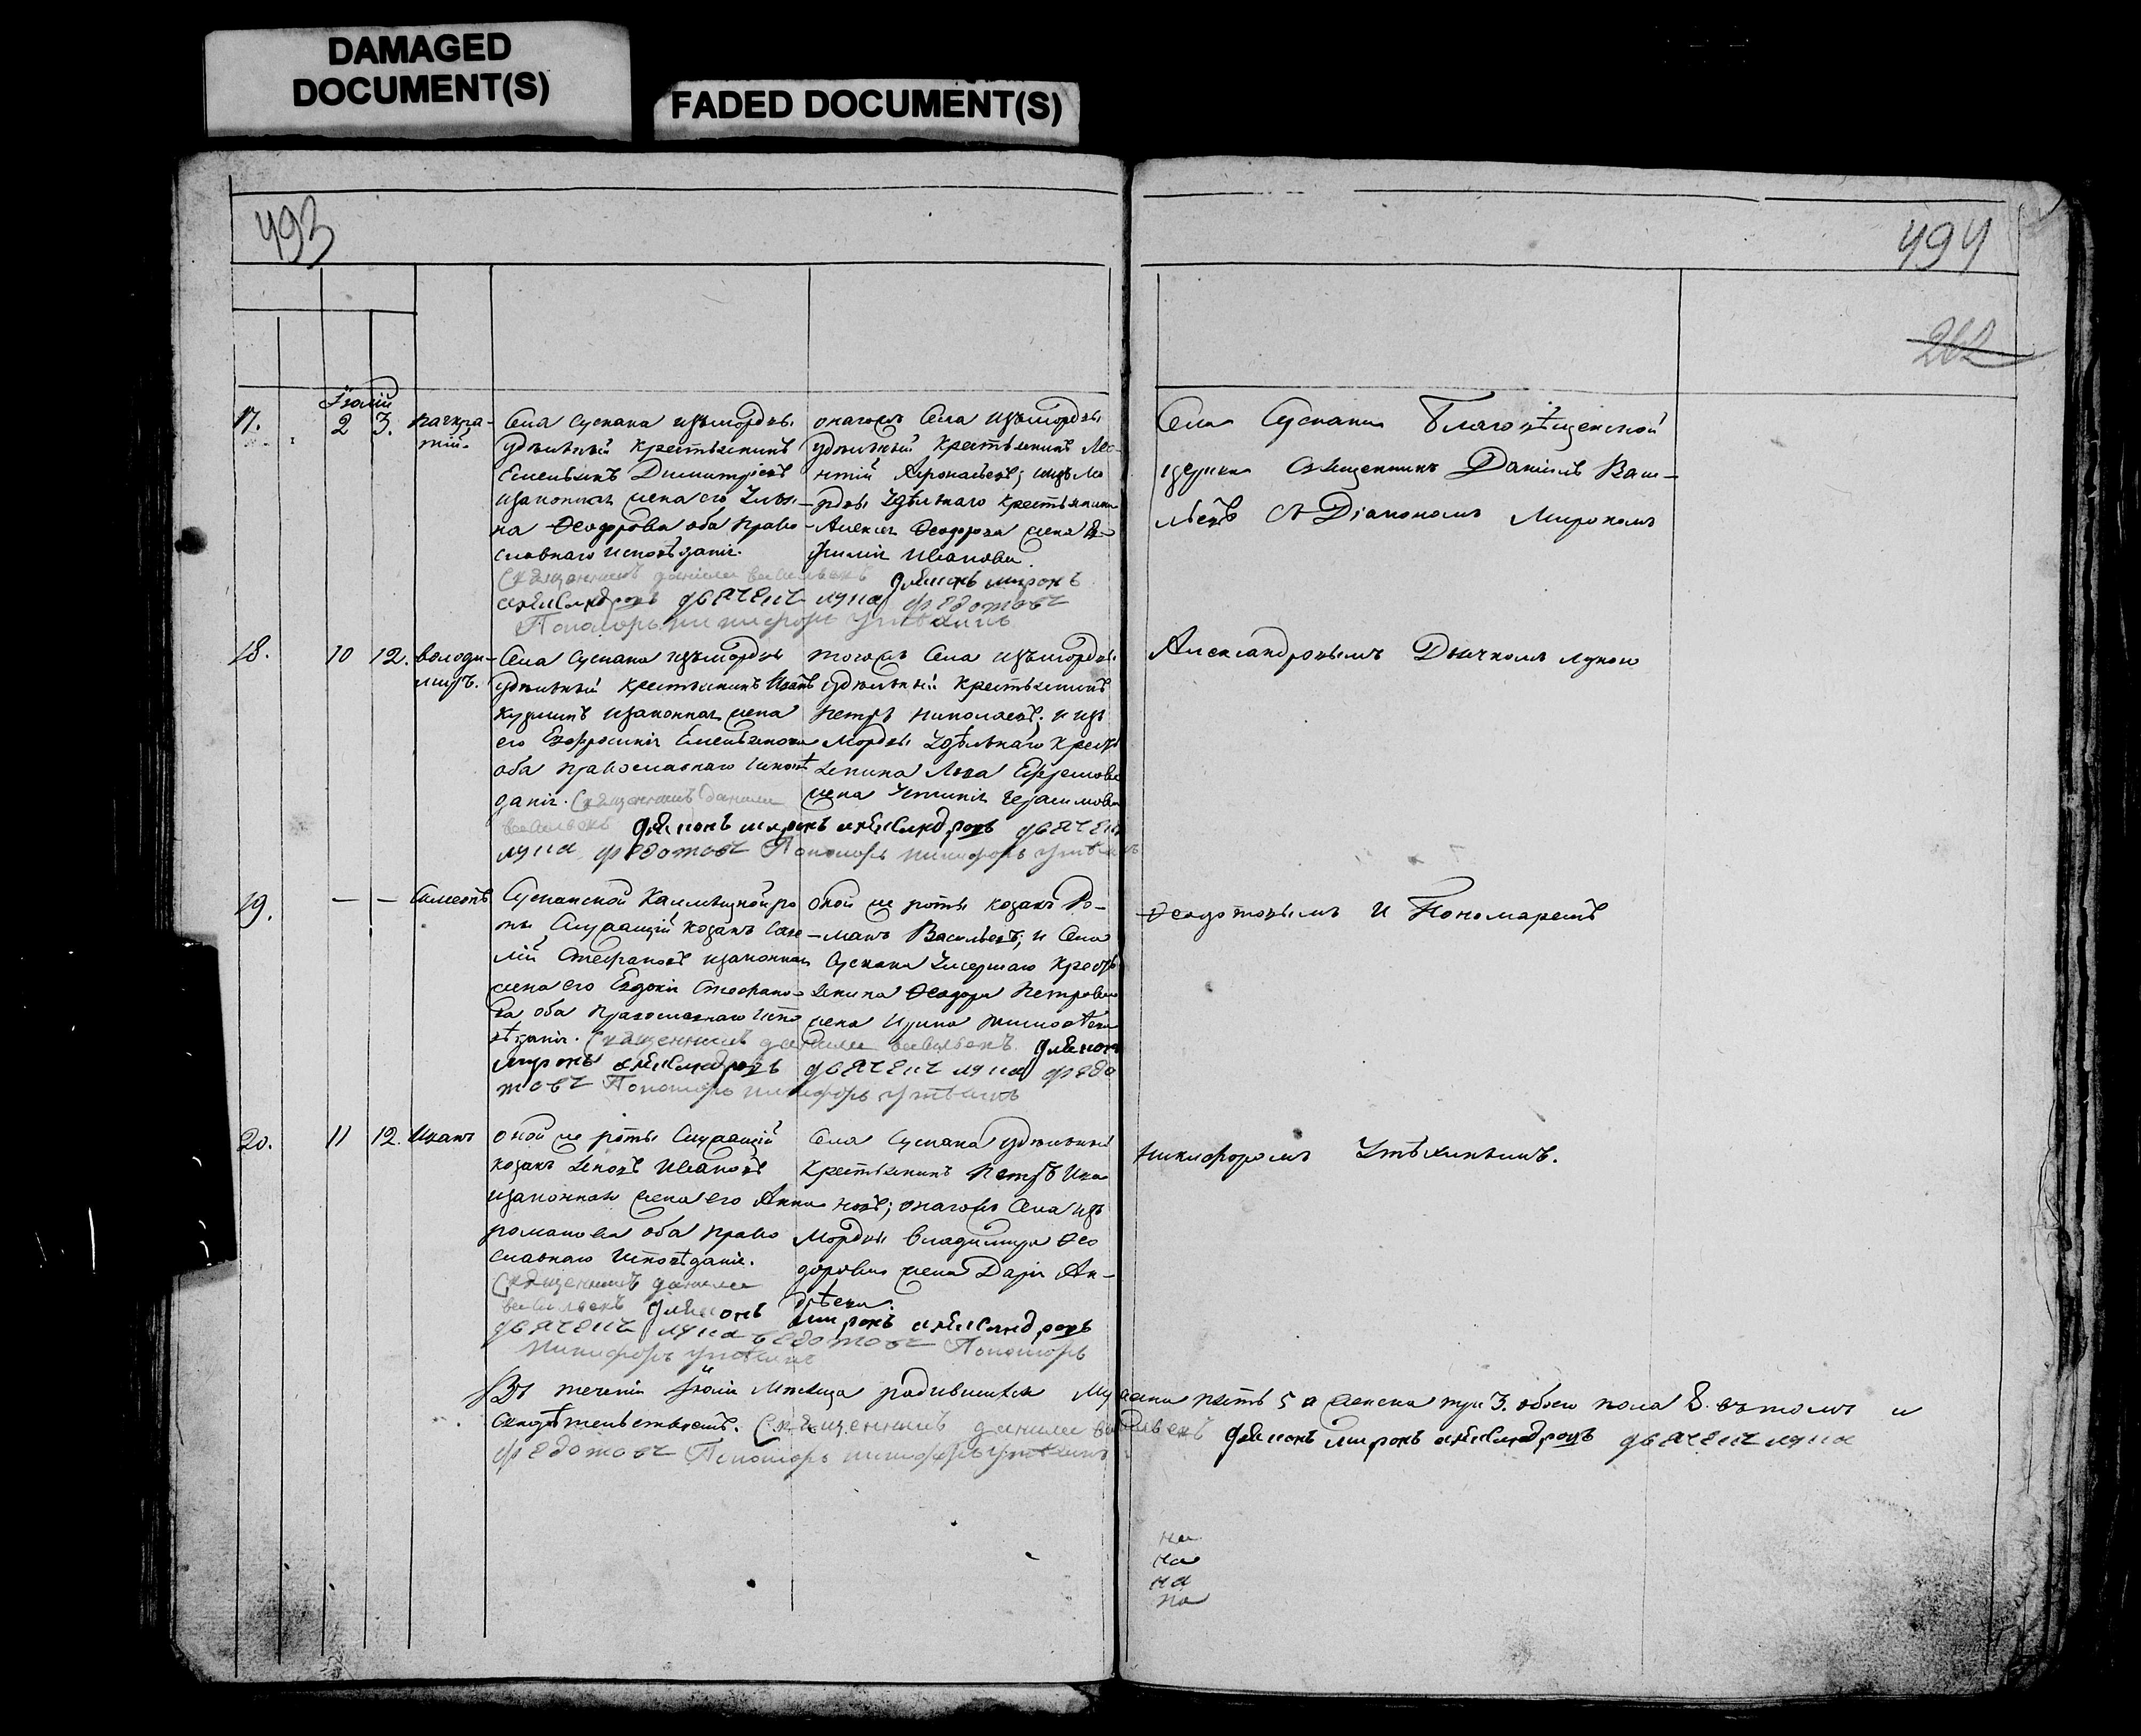 DAMAGED
DOCUMENT(S)
FADED DOCUMENT(S)
493
494
262
Іюлій
17.
2 3.
панкра-
тій.
Села Сускана изъ мордвы
удѣльный крестьянинъ
Емельянъ Димитріевъ
и законная жена его
на Ѳеодорова оба право-
славнаго исповѣданія.
Священникъ данилъ васильевъ діаконъ миронъ
александровъ дьячекъ лука федотовъ
Пономарь никифоръ утѣхинъ
онагожъ Села изъ мордвы
удѣльный крестьянинъ Лео-
нтій и изъ мо-
рдвы Удѣльнаго крестьянина
Алексея Ѳеодорова жена
Иванова.
Села Сускана Благовѣщенской
церкви Священникъ Даніилъ Васи-
льевъ съ Діакономъ Мирономъ
18.
10 12.
володи-
миръ.
Села Сускана изъ мордвы
удѣльный крестьянинъ Иванъ
Кузминъ и законная жена
его Евфросинія Емельянова
оба православнаго исповѣ
данія. Священникъ данилъ
васильевъ діаконъ миронъ александровъ дьячекъ
лука федотовъ Пономарь никифоръ утѣхинъ
тогожъ Села изъ мордвы
удѣльный крестьянинъ
Петръ Николаевъ; и изъ
Мордвы Удѣльнаго крест
янина Льва Ефремова
жена Устинія Герасимова
Александровымъ Дьячкомъ Лукою
19.
— —
Симеонъ
Сусканской Калмыцкой ро
ты Служащій козакъ Саве
лій Стефановъ и законная
жена его Евдокія Стефано-
ва оба православнаго испо
вѣданія. Священникъ данилъ васильевъ діаконъ
миронъ александровъ дьячекъ лука федо
товъ Пономарь никифоръ утѣхинъ
оной же роты козакъ Ро-
манъ Васильевъ; и Села
Сускана Умершаго крест
янина Ѳеодора Петрова
жена Ирина Тимоѳеева
Ѳеодотовымъ и Пономаремъ
20.
11 12.
Иванъ
оной же роты Служащій
козакъ Яковъ Ивановъ
и законная жена его Анна
романова оба право
славнаго исповѣданія.
Священникъ данилъ
васильевъ діаконъ миронъ александровъ
дьячекъ лука федотовъ Пономарь
никифоръ утѣхинъ
Села Сускана удѣльный
крестьянинъ Петръ Ива
новъ; онагожъ Села изъ
Мордвы Владимира Ѳео
дорова жена Дарія Ан-
дрѣева.
Никифоромъ Утѣхинымъ.
Въ теченіи Іюлія Мѣсяца родившихся Мужеска пять 5 а женска три 3. обоего пола 8. въ томъ и
свидѣтельствуемъ. Священникъ данилъ васильевъ діаконъ миронъ александровъ дьячекъ лука
федотовъ Пономарь никифоръ утѣхинъ
на
на
на
на